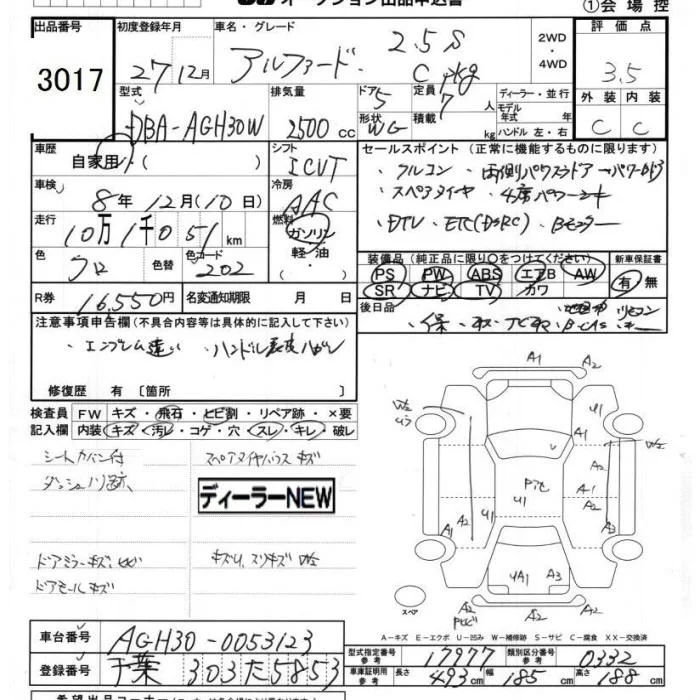 オークション出品申込書
①会場控
出品番号 初度登録年月 車名・グレード 評価点
3017 27 12月 アルファード 2.5S Cpkg 2WD・4WD 3.5
型式 排気量 ドア 定員 ディーラー・並行 外装 内装
DBA-AGH30W 2500cc 5 7人 モデル年式 年式 C C
形状 WG 積載 kg ハンドル 左・右
車歴 シフト セールスポイント(正常に機能するものに限ります)
自家用・( ) ICVT ・フルコン ・両側パワスラドア
車検 冷房 ・スペアタイヤ
8年12月(10日) AAC ・DTV ・ETC(DSRC) ・Bモニター
走行 燃料
10万1千051km ガソリン 装備品(純正品に限り〇をつけてください) 新車保証書
色 色替 色コード 軽油・ PS PW ABS エアB AW 有・無
クロ 202 SR ナビ TV カワ
R券 16,550円 名変通知期限 月 日 後日品
注意事項申告欄(不具合内容等は具体的に記入して下さい) ・保・取・ナビ取
・エンブレム違い ・ハンドル表皮ハガレ
修復歴 有〔箇所
検査員記入欄 FW キズ・飛石・ヒビ割・リペア跡・×要
内装 キズ・汚レ・コゲ・穴・スレ・キレ・破レ
シートカバー付 スペアタイヤハウスキズ
ダッシュノリ跡
ディーラーNEW
ドアミラーキズ
ドアモールキズ
A1 A2
A2 U1
W2
A2
U1 A1
A1 A2 A2 A3
UA1 A3
A2 A2
スペア
A-キズ E-エクボ U-凹み W-補修跡 S-サビ C-腐食 XX-交換済
車台番号 AGH30-0053123
型式指定番号 参考 17977 類別区分番号 参考 0332
登録番号 千葉 303 た 5853
車庫証明用 参考 長さ 493cm 幅 185cm 高さ 188cm